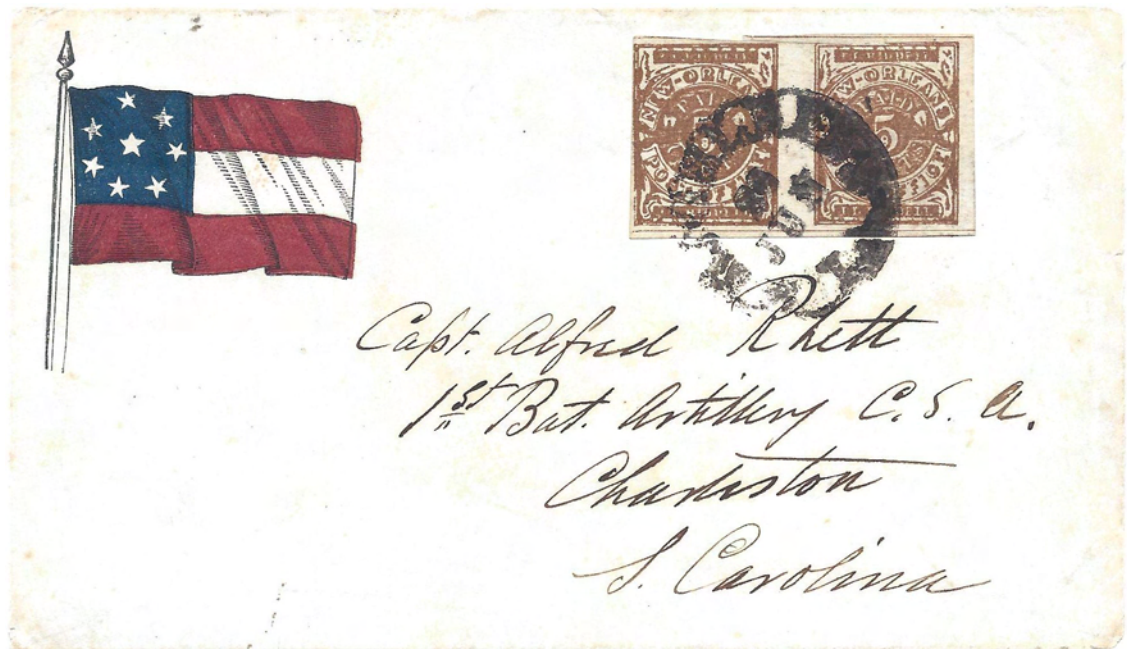 NEW-ORLEANS
PAID
5
POST OFFICE
NEW-ORLEANS
PAID
5
CTS
POST OFFICE
Capt. Alfred Rhett
1st Bat. Artillery C. S. A.
Charleston
S. Carolina